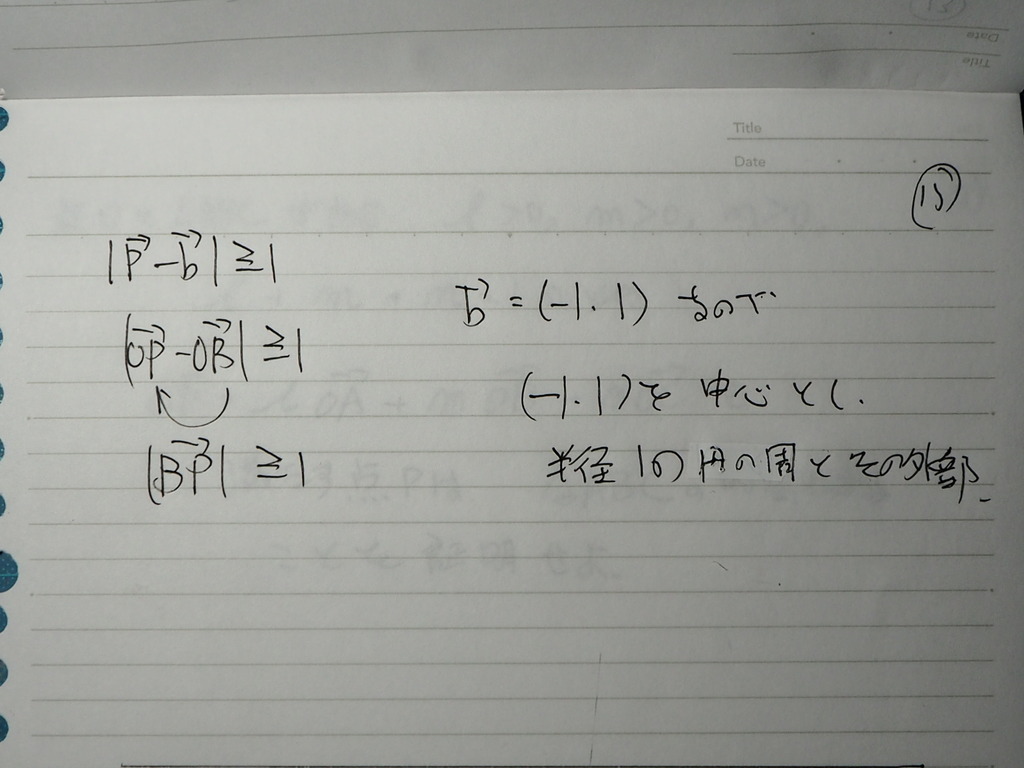 Title
Date
⑮
|p⃗ - b⃗| ≧ 1
|OP⃗ - OB⃗| ≧ 1
|BP⃗| ≧ 1
b⃗ = (-1, 1) なので
(-1, 1)を中心とし、
半径1の円の周とその外部、